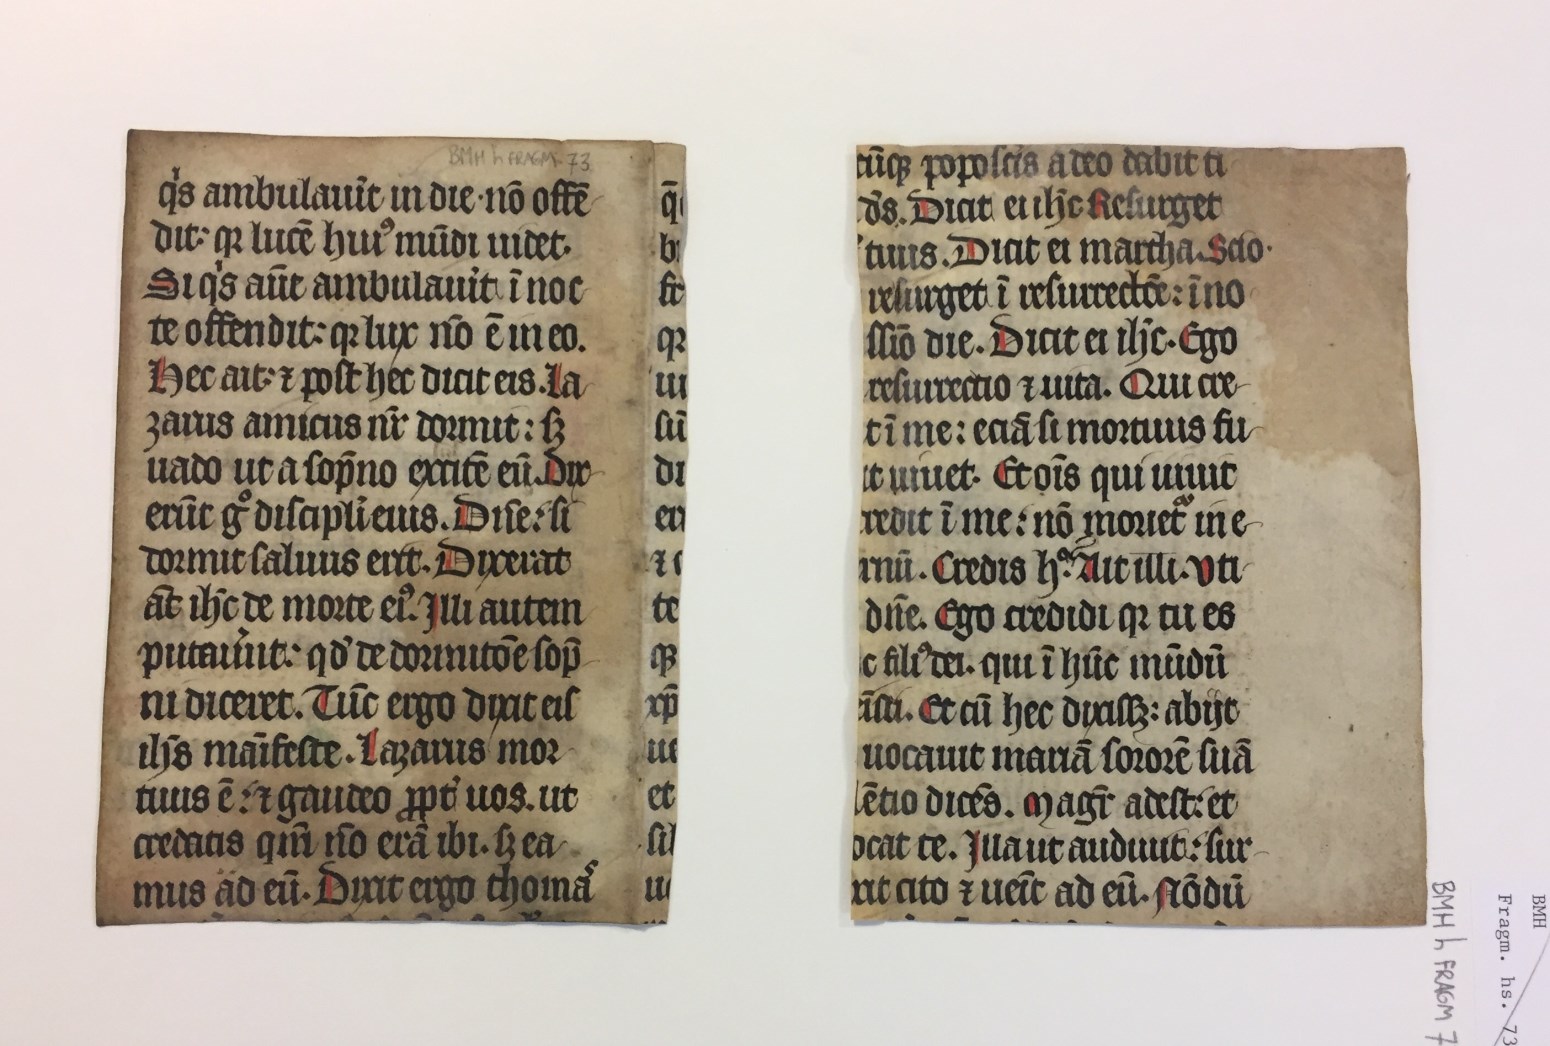 BMH h FRAGM. 73
q's ambulau̾it in die· nō offē
dit: qꝛ lucē huiꝰ mūdi uidet.
Si q's aūt ambulau̾it ī noc
te offendit: qꝛ lux nō ē in eo.
Hec ait: ⁊ post hec dicit eis. La
zarus amicus nr̄ dormit: sꝫ
uado ut a sop̄no excitē eū. Dix
erūt gͦ discipli eius. Dn̄e: si
dormit saluus erit. Dixerat
āt ih̄c de morte eiꝰ. Illi autem
putau̾unt: qď de dormitōe sop̄
ni diceret. Tūc ergo dixit eis
ih̄s māifeste. Lazarus mor
tuus ē: ⁊ gaudeo ꝓpt̾ uos. ut
credatis qm̄ nō erā ibi. sꝫ ea
mus ad eū. Dixit ergo thomas
q̄
bi
fr
qꝛ
ui
sū
di
er
⁊ c
te
qꝫ
xp̄
ue
et
sil
uc
cūqꝫ poposcis a deo dabit ti
d̄s. Dicit ei ih̄c Resurget
tuus. Dicit ei martha. Scio·
resurget ī resurrectōe: ī no
ssīo die. Dicit ei ih̄c. Ego
resurrectio ⁊ uita. Qui cre
t ī me: eciā si mortuus fu
it uiuet. Et oīs qui uiuit
credit ī me: nō morietᷣ in e
rnū. Credis hͦ. Ait illi. Vti
dn̄e. Ego credidi qꝛ tu es
c filiꝰ dei. qui ī hūc mūdū
ēisti. Et cū hec dixissꝫ: abijt
uocauit mariā sororē suā
lētio dicēs. Magr̄ adest: et
ocat te. Illa ut audiuit: sur
xit cito ⁊ ueīt ad eū. Nōdū
BMH h FRAGM 7
BMH
Fragm. hs. 73